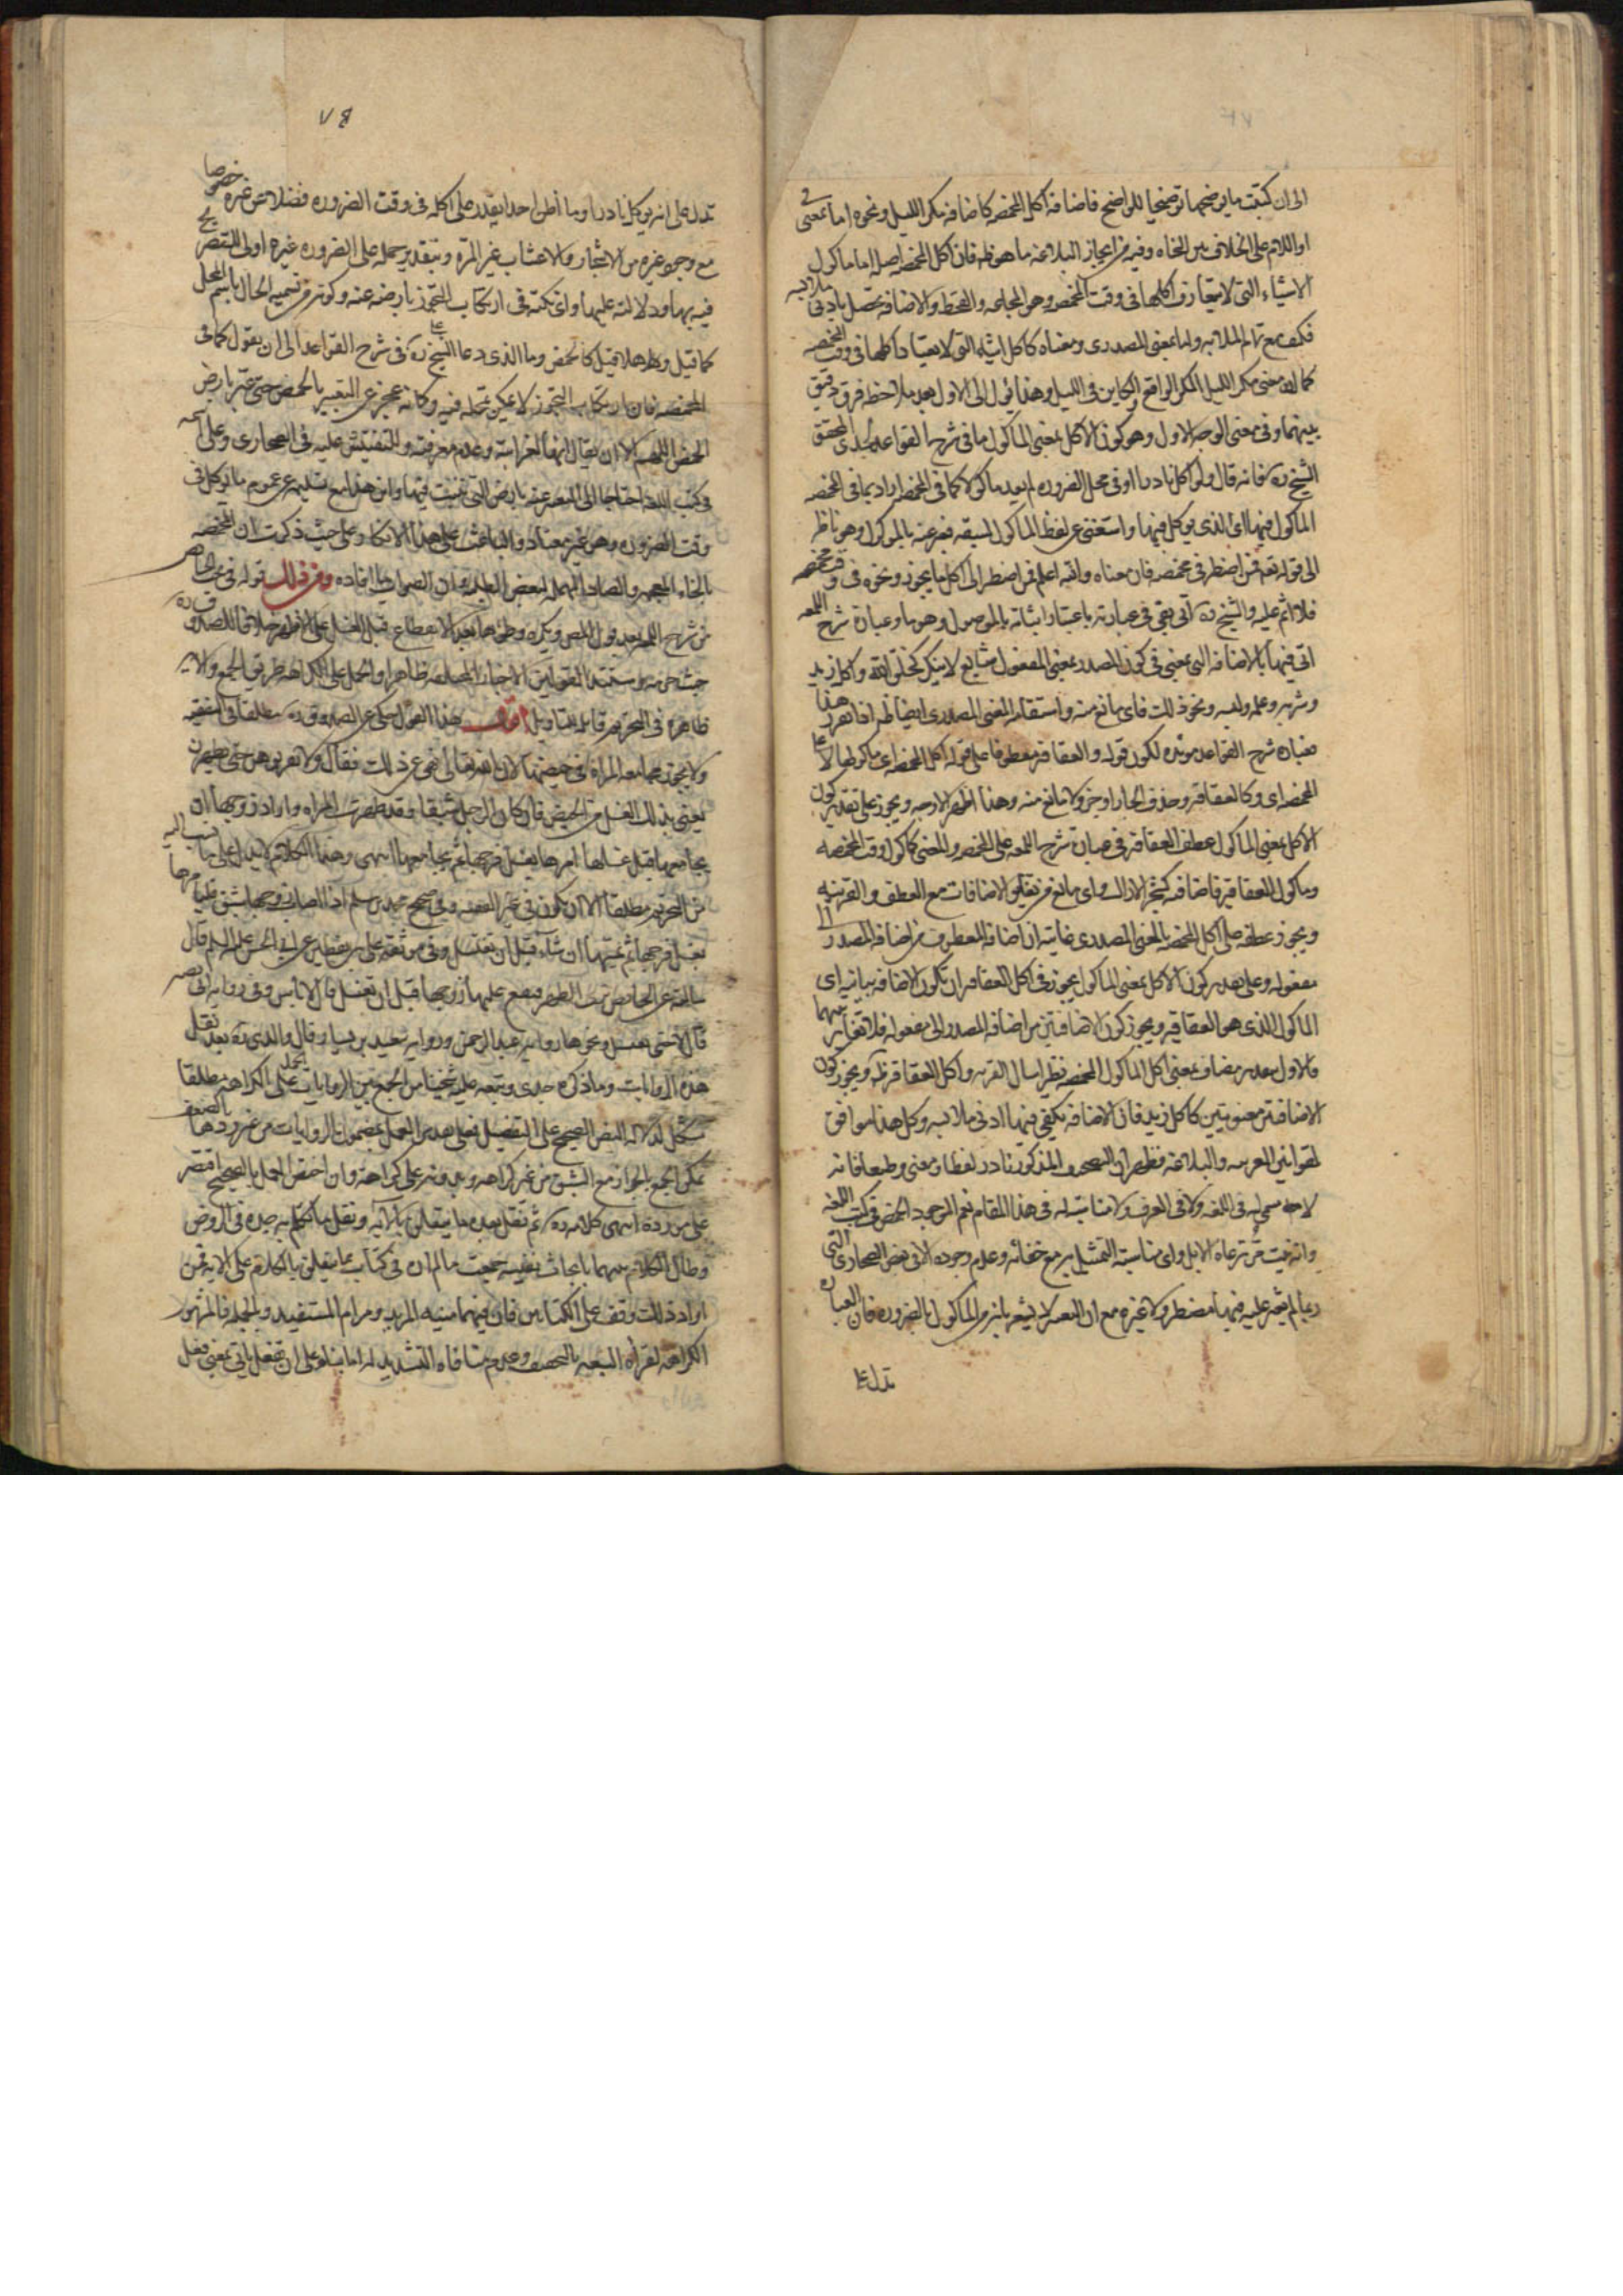 الى ان كتبت ما يوضحها توضيحا للواضح فاضافة اكل المخمصه كاضافة مكر الليل ونحوه اما بمعنى في
او اللام على الخلاف بين النحاه وفيه من ايجاز البلاغه ما هو ظ فان اكل المخمصه اصله اما ماكول
الاشياء التى لا يتعارف اكلها فى وقت المخمصه وهو المجاعه والقحط والاضافه تحصل بادنى ملابسه
فكيف مع تمام الملابسه واما بمعنى المصدرى ومعناه كاكل التى لا يعتاد اكلها فى وقت المخمصه
كما ان معنى مكر الليل المكر الواقع او الكاين فى الليل وهذا يؤل الى الاول بعد ملاحظه فرق دقيق
بينهما وفى معنى الوجه الاول وهو كون الاكل بمعنى الماكول ما فى شرح القواعد لجدى المحقق
الشيخ ره فانه قال ولو اكل نادرا او فى محل الضروره لم يعد ماكولا كما فى المخمصه اراد بما فى المخمصه
الماكول فيها اى الذى يوكل فيها واستغنى عن لفظ الماكول لسبقه فعبر عنه بالموصول وهو ناظر
الى قوله تعه فمن اضطر فى مخمصه فان معناه والله اعلم فمن اضطر الى اكل ما يجوز ونحوه فى وقت مخمصه
فلا اثم عليه والشيخ ره اتى بفى فى عبارته باعتبار اتيانه بالموصول وهو ما وعبارة شرح اللمعه
اتى فيها بالاضافه التى بمعنى فى كون المصدر بمعنى المفعول شايع لا ينكر كخلق الله واكل زيد
وشربه وعمله ولبسه ونحو ذلك فاى مانع منه واستقامه المعنى المصدرى ايضا ظ اذا تقرر هذا
فعبارة شرح القواعد مؤيده لكون قوله والعقاقير معطوفا على قوله اكل المخمصه اى ماكولها لا على
المخمصه اى وكالعقاقير وحذف الجار او جزو لا مانع منه وهذا اظهر الاوجه ويجوز على تقدير كون
الاكل بمعنى الماكول عطف العقاقير فى عبارة شرح اللمعه على المخمصه والمعنى كماكول وقت المخمصه
وماكول العقاقير فاضافه كشجر الاراك واى مانع من تغاير الاضافات مع العطف والقرينه
ويجوز عطفه على اكل المخمصه بالمعنى المصدرى غايته ان اضافه المعطوف من اضافه المصدر الى
مفعوله وعلى تقدير كون الاكل بمعنى الماكول يجوز فى اكل العقاقير ان تكون الاضافه بيانيه اى
الماكول الذى هو العقاقير ويجوز كون الاضافتين من اضافه المصدر الى مفعوله فلا تغاير بينهما
فالاول بتقدير مضاف بمعنى اكل الماكول المخمصه نظير اسال القريه واكل العقاقير ظ ويجوز كون
الاضافتين معنويتين كاكل زيد فان الاضافه يكفى فيها ادنى ملابسه وكل هذا موافق
لقوانين العربيه والبلاغه فظهر ان التصحيف المذكور نادر لفظا ومعنى وطبعا فانه
لا سمى له فى اللغه ولا فى العرف ولا مناسبه له فى هذا المقام نعم الموجود الحمض فى كتب اللغه
وانه نبت مر ترعاه الابل واى مناسبة للتمثيل به مع خفائه وعدم وجوده الا فى بعض الصحارى التى
ربما لم يعثر عليه فيها مضطر ولا غيره مع ان التعبير لا يشعر بانه من الماكول بالضروره فان العباره
تدل على
٧٥
تدل على انه يوكل نادرا وما اظن احدا يقدر على اكله فى وقت الضروره فضلا عن غيره خصوصا
مع وجود غيره من الاشجار والاعشاب غير المره وبتقدير حمله على الضروره غيره اولى للتصريح
فيه بها ودلالته عليها واى نكته فى ارتكاب التجوز بارضه عنه وكونه من تسميه الحال باسم المحل
كما قيل وهلا قيل كالحمض وما الذى دعا الشيخ ره فى شرح القواعد الى ان يقول كما فى
المخمصه فان ارتكاب التجوز لا يمكن تمحله فيه وكانه عجز عن التعبير بالحمض حتى عبر بارض
الحمض اللهم الا ان يقال انها لغرابته وعدم معرفته والتفتيش عليه فى الصحارى وعلى اسمه
فى كتب اللغه احتاجا الى التعبير عنه بارض التى ينبت فيها واين هذا مع تسليمه عن عموم ما يوكل فى
وقت الضروره وهو غير معتاد والباعث على هذا الاتكاء على حيث ذكرت ان المخمصه
بالخاء المعجمه والصاد المهمله لبعض الطلبه وان الصواب ما افاده ومن ذلك قوله فى بحث الحيض
من شرح اللمعه بعد قول المص ويكره وطئها بعد الانقطاع قبل الغسل على الاظهر خلافا للصدوق ره
حيث حرمه ومستند القولين الاخبار المختلفه ظاهرا والحمل على الكراهه طريق الجمع والايه
ظاهره فى التحريم قابله للتاويل اقول هذا القول نقل عن الصدوق ره مطلقا وفى الفقيه
ولا يجوز مجامعه المراه فى حيضها لان الله تعالى نهى عن ذلك فقال ولا تقربوهن حتى يطهرن
يعنى بذلك الغسل من الحيض فان كان الرجل شبقا وقد طهرت المراه واراد زوجها ان
يجامعها قبل غسلها امرها بغسل فرجها ثم يجامعها انتهى وهذا الكلام لا يدل على ما نسب اليه
من التحريم مطلقا الا ان يكون فى غير الفقيه وفى صحيح محمد بن مسلم اذا اصاب زوجها شبق فليامرها
بغسل فرجها ثم يمسها ان شاء قبل ان تغتسل وفى موثقه على بن يقطين عن ابى الحسن عليه السلم قال
سالته عن الحائض ترى الطهر فيقع عليها زوجها قبل ان تغتسل قال لا باس وفى روايه ابى بصير
قال لا حتى تغتسل ونحوها روايه عبد الرحمن وروايه سعيد بن يسار وقال والدى ره بعد نقل
هذه الروايات وما ذكره جدى وتبعه عليه شيخنا من الجمع بين الروايات بحمل على الكراهه مطلقا
مشكل لدلاله النص الصحيح على التفصيل فعلى تقدير العمل بمضمون الروايات من غير ردها بالضعف
يمكن الجمع بالجواز مع الشبق من غير كراهه وبدونه على كراهه وان اختص العمل بالصحيح اقتصر
على مورده انتهى كلامه ره ثم نقل بعده ما يتعلق بالايه ونقل ما تكلم به جده فى الروض
وطال الكلام بينهما بابحاث نفيسه جمعت ما لم ار فى كتاب مما يتعلق بالكلام على الايه فمن
اراد ذلك وقف على الكتابين فان فيهما منيه المريد ومرام المستفيد وبالجمله فالمشهور
الكراهه لقراه السبعه بالتخفيف وعدم منافاه التشديد له اما بناء على ان تفعل ياتى بمعنى فعل